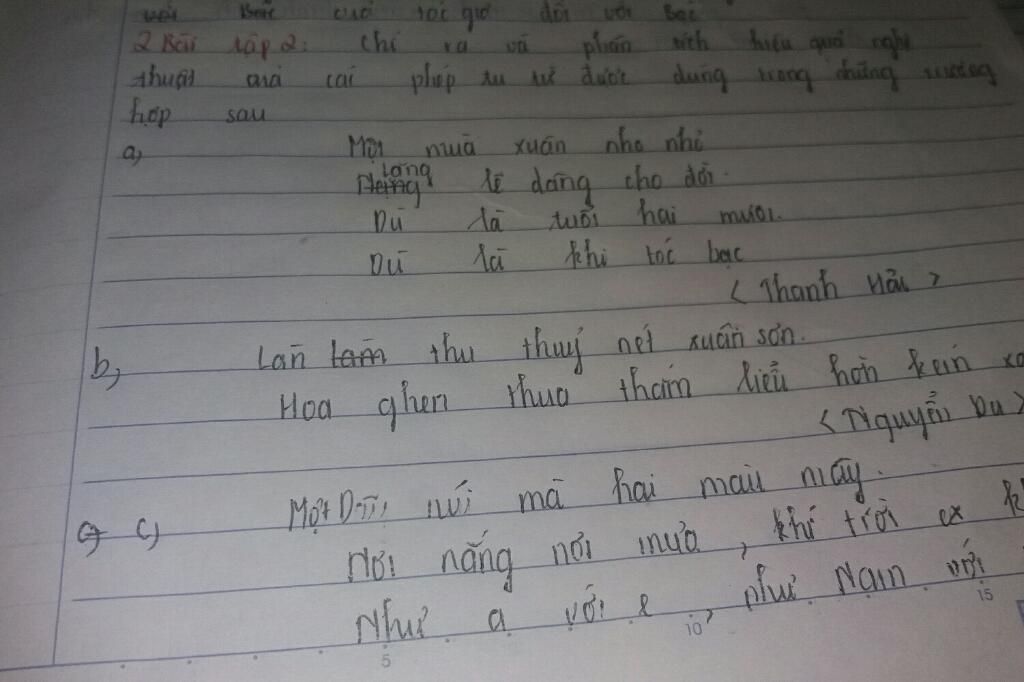 với Bác cuả tác giả đối với Bác
2 Bài tập 2: Chỉ ra và phân tích hiệu quả nghệ
thuật của các phép tu từ được dùng trong những trường
hợp sau
a, Một muà xuân nho nhỏ
lặng lẽ dâng cho đời.
Dù là tuổi hai mươi.
Dù là khi tóc bạc
< Thanh Hải >
b, Làn thu thuỷ nét xuân sơn.
Hoa ghen thua thắm liễu hờn kém xa
< Nguyễn Du >
c) Một Dãy núi mà hai màu mây.
Nơi nắng nơi mưa, khí trời
Như a với e, như Nam với
5 10 15